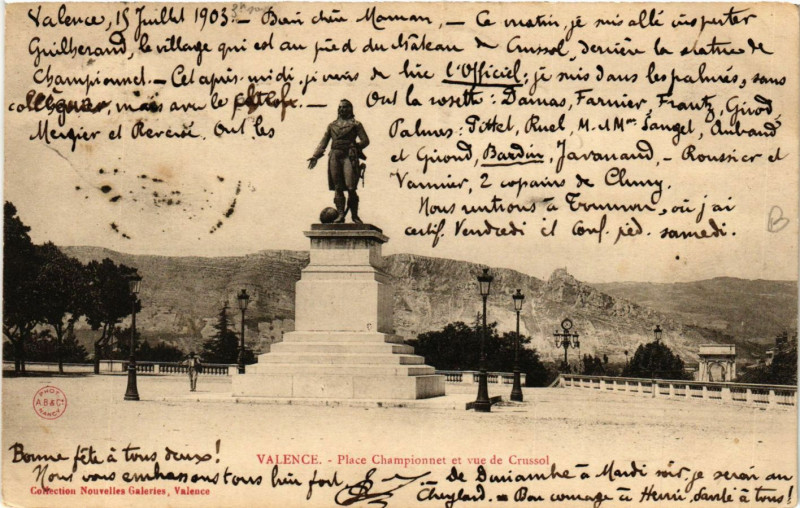 Valence, 15 Juillet 1903. - Bien chère Maman, - Ce matin, je suis allé inspecter
Guilherand, le village qui est au pied du château de Crussol, derrière la statue de
Championnet. - Cet après-midi, je viens de lire l'Officiel: je suis dans les palmés, sans
collègues, mais avec le - Ont la rosette: Damas, Farnier, Frantz, Girod,
Mercier et Ont les
Palmes: Pittet, Ruel, M. et Mme Sauget, Aubaud
et Giroud, Bardin, Javanaud, - Roussier et
Vannier, 2 copains de Cluny.
Nous rentrons à Tournon, où j'ai
certif. Vendredi et Conf. péd. samedi.
Bonne fête à tous deux!
VALENCE. - Place Championnet et vue de Crussol
Nous vous embrassons tous bien fort
- de Dimanche à Mardi soir, je serai au
Cheylard. - Bon courage à Henri, Santé à tous!
Collection Nouvelles Galeries, Valence
PHOT
A B & Cie
NANCY
B